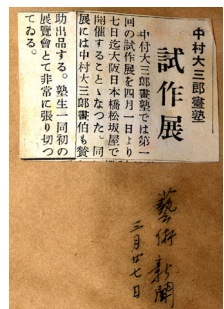 中村大三郎畫塾
試作展
中村大三郎畫塾では第一
回の試作展を四月一日より
七日迄大阪日本橋松坂屋で
開催することゝなつた。同
展には中村大三郎畫伯も贊
助出品する。塾生一同初の
展覽會とて非常に張り切つ
てゐる。
藝術新聞
三月廿七日